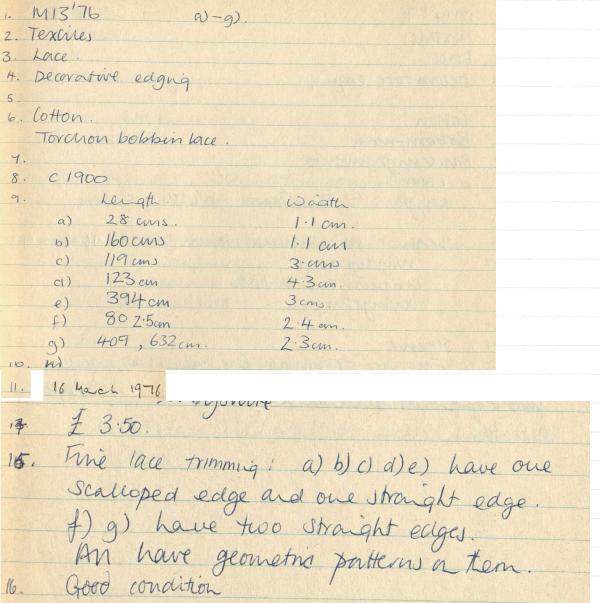 1. M13'76 a)-g).
2. Textiles
3. Lace.
4. Decorative edging
5.
6. Cotton.
Torchon bobbin lace.
7.
8. C 1900
9. Length Width
a) 28 cms. 1.1 cm.
b) 160 cms 1.1 cm
c) 119 cms 3. cms
d) 123 cm 4.3 cm.
e) 394 cm 3 cms.
f) 80 2.5 cm 2.4 cm.
g) 409, 632 cm. 2.3 cm.
10. nil
11. 16 March 1976
£ 3.50.
15. Fine lace trimming: a) b) c) d) e) have one
scalloped edge and one straight edge.
f) g) have two straight edges.
All have geometric patterns on them.
16. Good condition